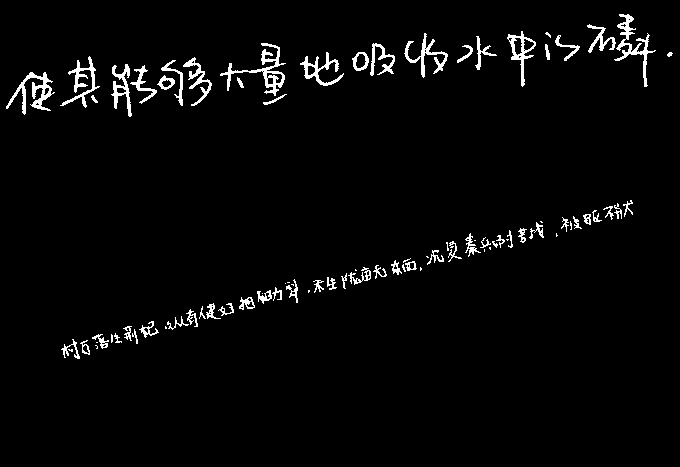 使其能够大量地吸收水中的磷.
村万落生荆杞.纵有健妇把锄犁.禾生陇亩无东西.况复秦兵耐苦战,被驱不犬